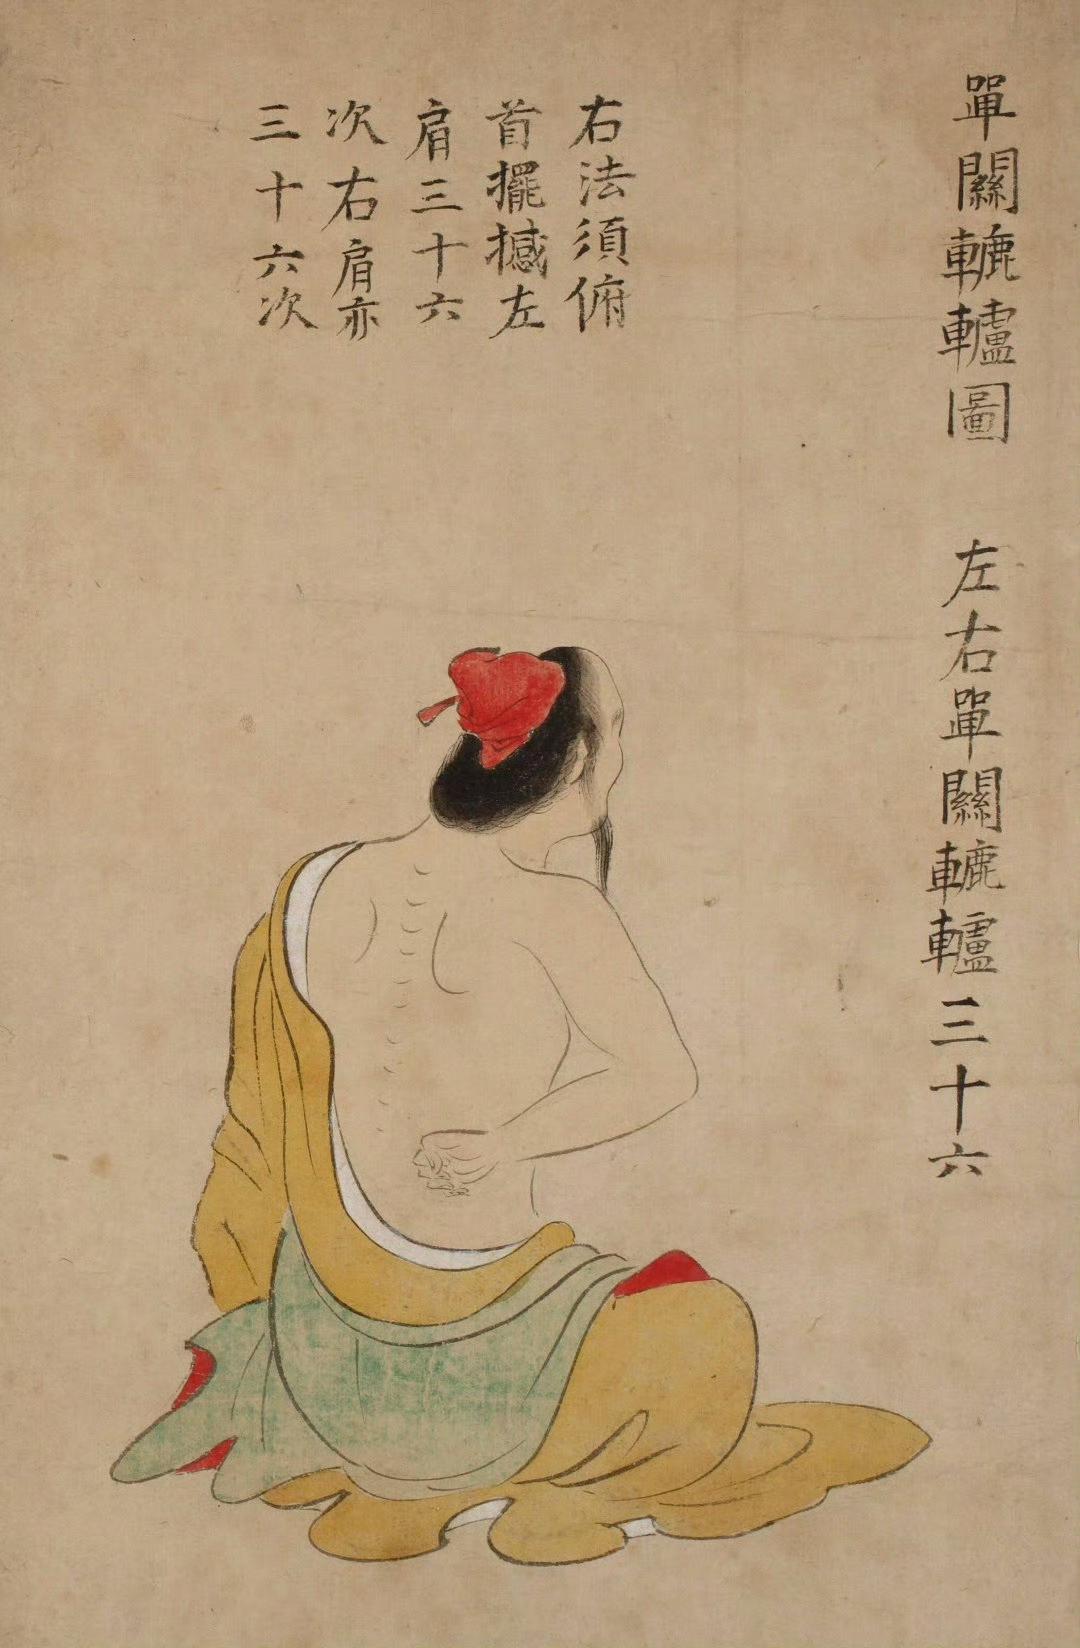 單關轆轤圖
左右單關轆轤三十六
右法須俯
首擺撼左
肩三十六
次右肩亦
三十六次